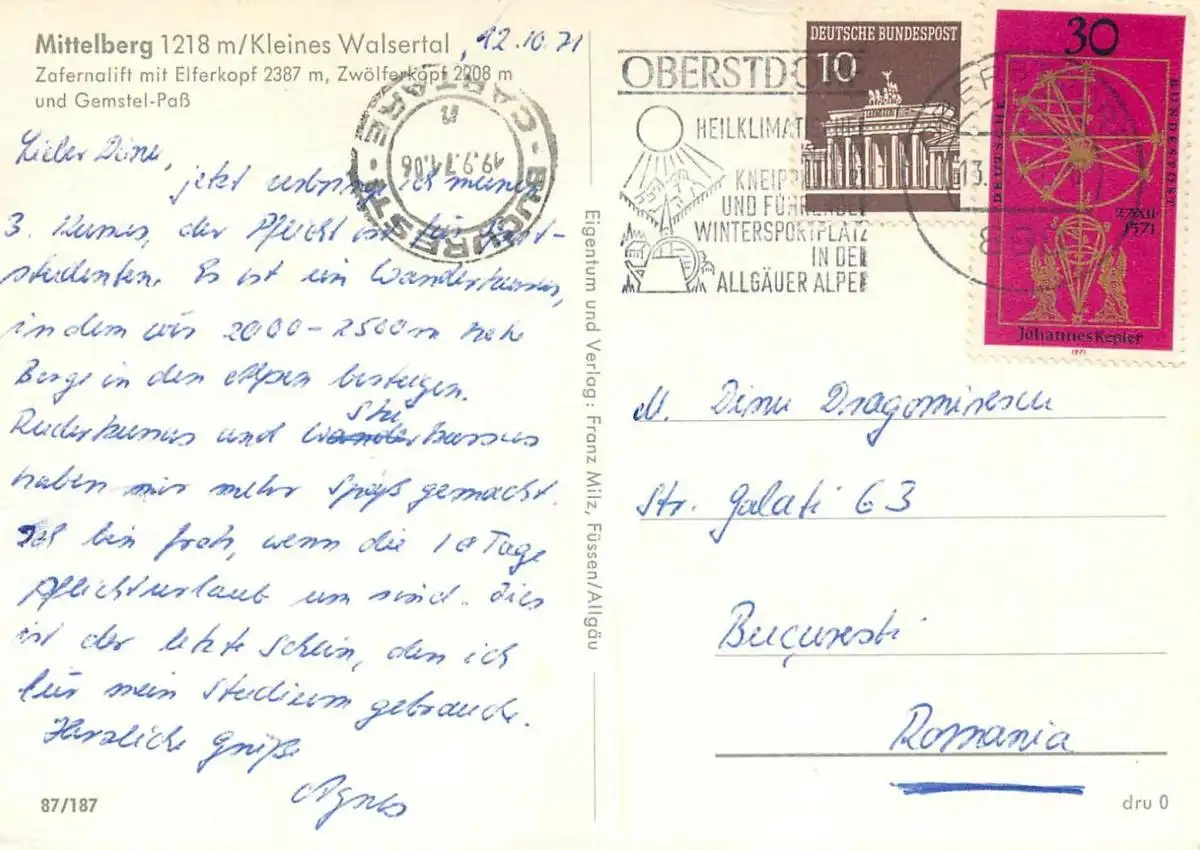 Mittelberg 1218 m/Kleines Walsertal
Zafernalift mit Elferkopf 2387 m, Zwölferkopf 2208 m
und Gemstel-Paß
12.10.71
Lieber Dinu,
jetzt verbringe ich meinen
3. Kursus, der Pflicht ist für Sport-
studenten. Es ist ein Wanderkursus,
in dem wir 2000-2500 m hohe
Berge in den Alpen besteigen.
Ruderkursus und Skikursus
haben mir mehr Spaß gemacht.
Ich bin froh, wenn die 10 Tage
Pflichturlaub um sind. Dies
ist der letzte Schein, den ich
für mein Studium gebrauche.
Herzliche Grüße
Agnes
87/187
BUCUREŞTI
CARTARE
19.9.71.06
Eigentum und Verlag: Franz Milz, Füssen/Allgäu
OBERSTDORF
HEILKLIMAT
KNEIPP
UND FÜHRENDER
WINTERSPORTPLATZ
IN DEN
ALLGÄUER ALPEN
DEUTSCHE BUNDESPOST
10
30
DEUTSCHE BUNDESPOST
27.XII
1571
Johannes Kepler
1971
13.
M. Dinu Dragomirescu
Str. Galati 63
Bucuresti
Romania
dru 0